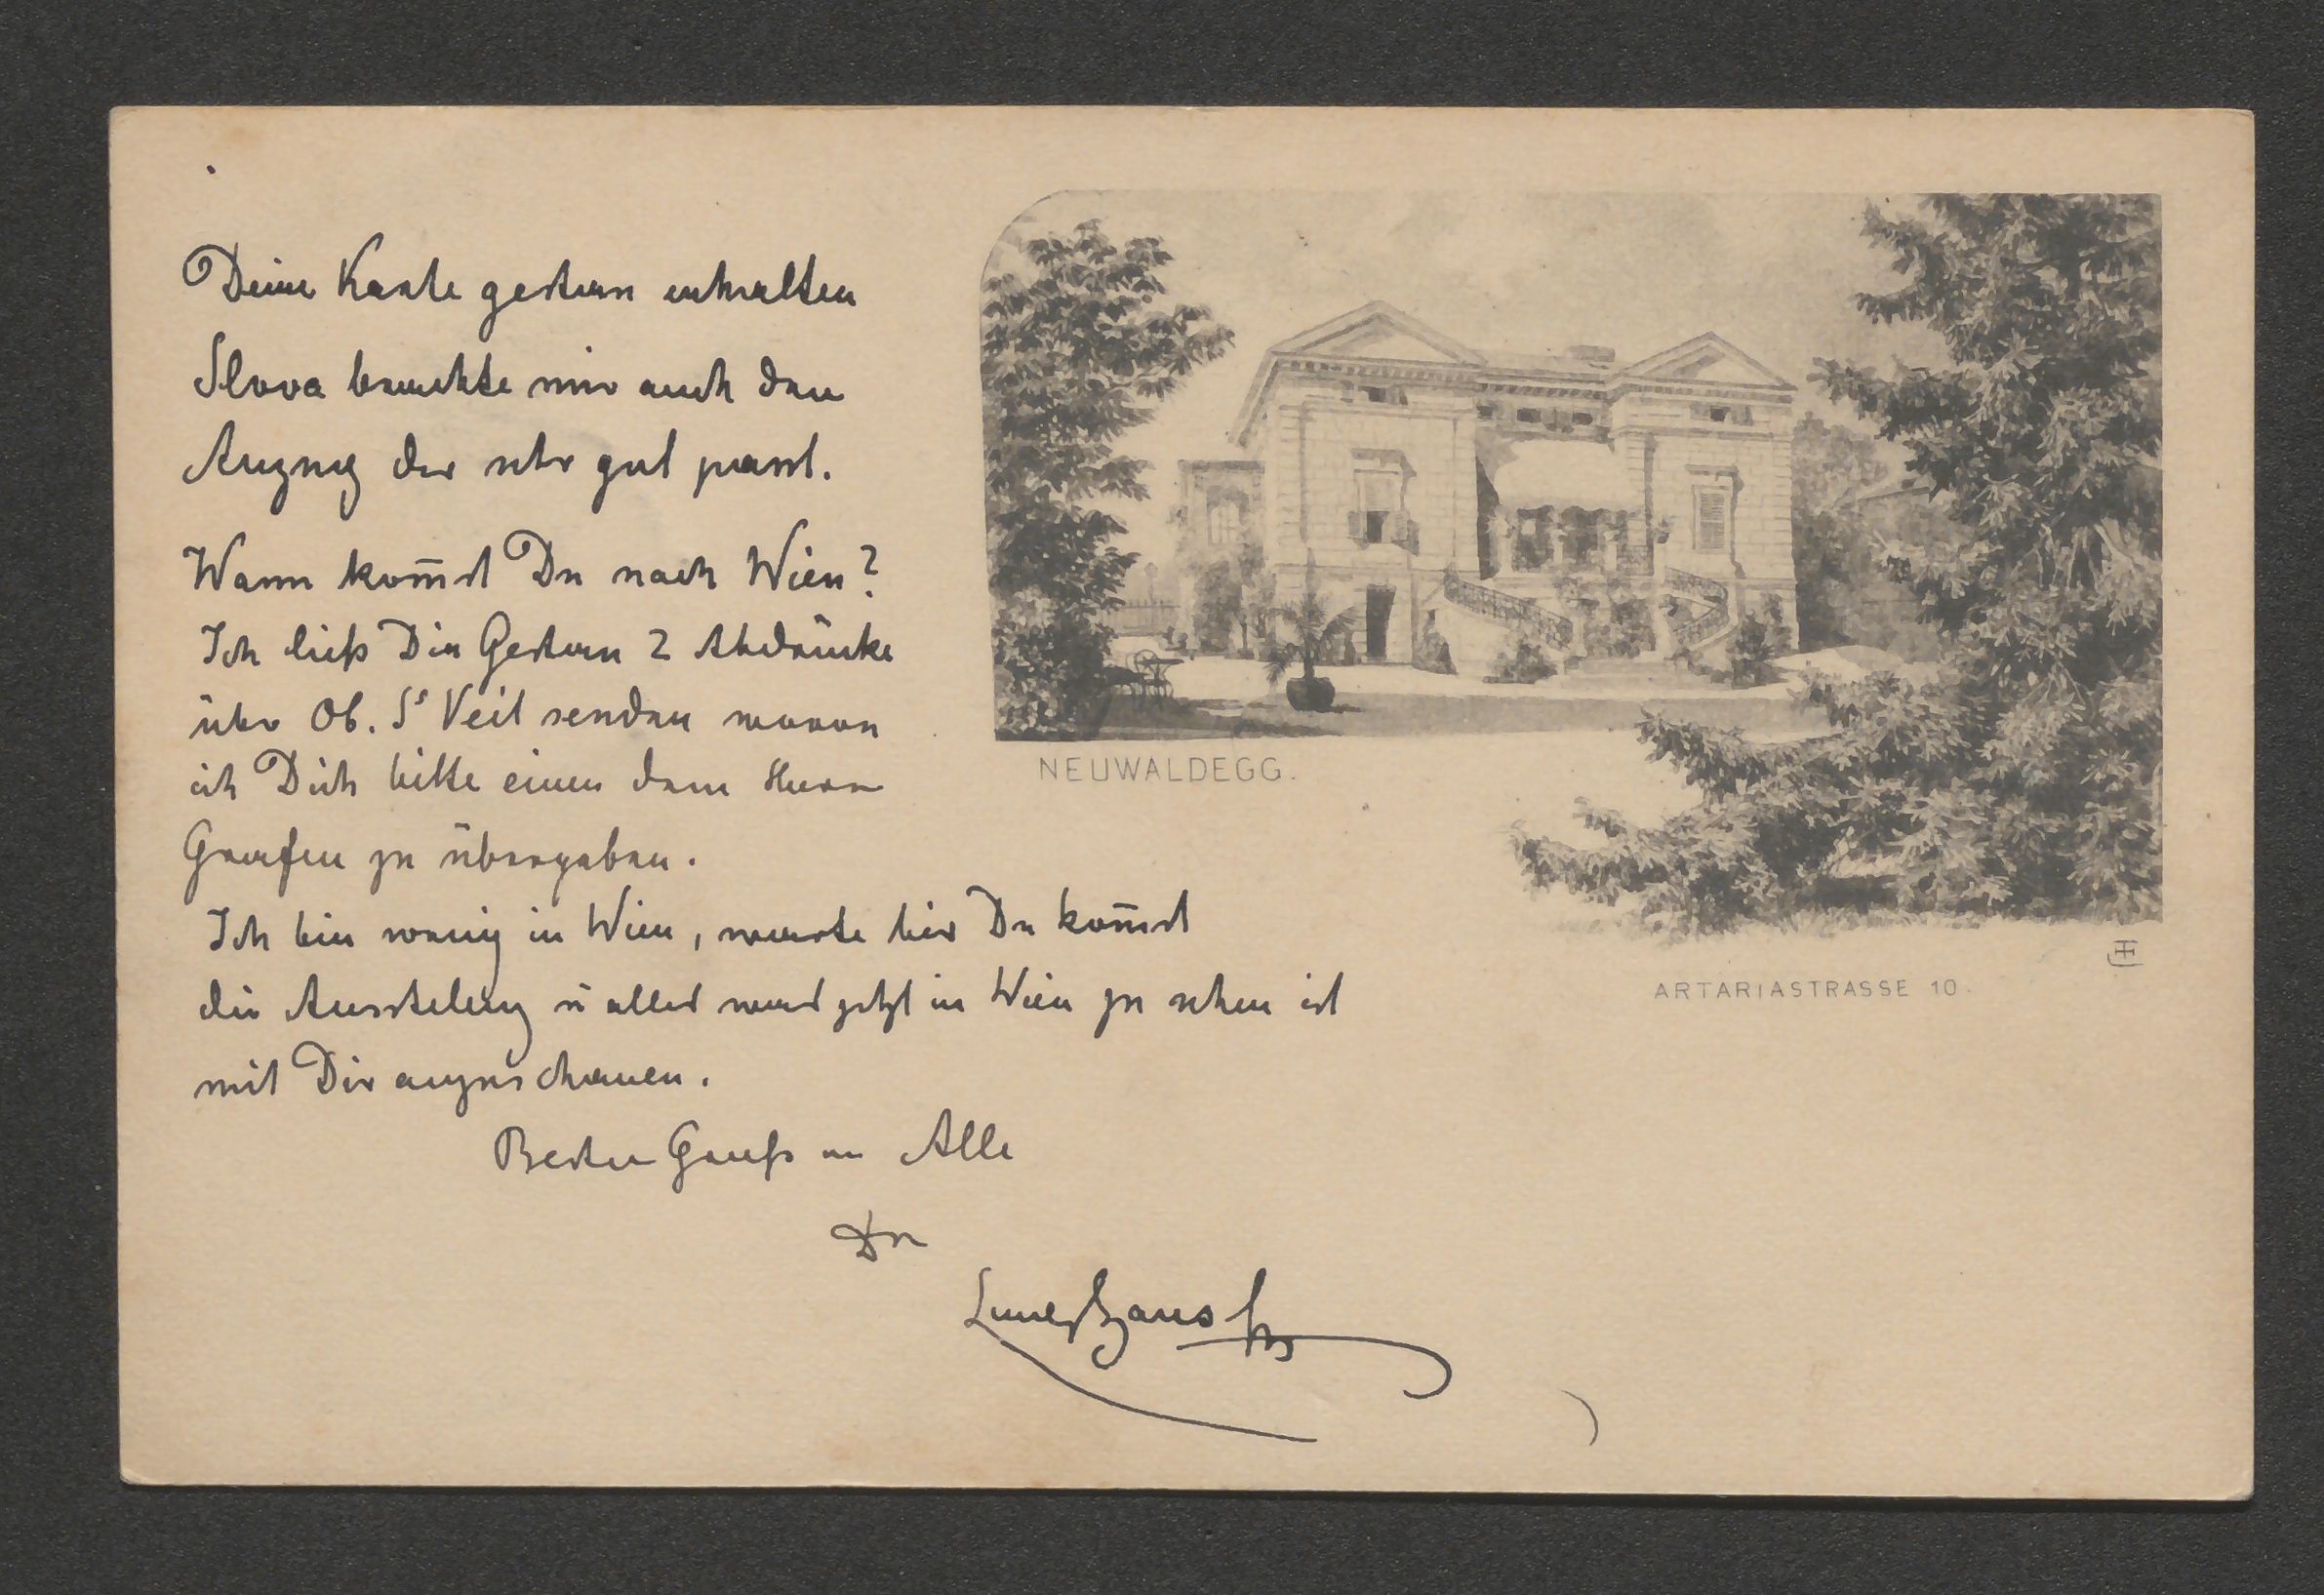 Deine Karte gestern erhalten
Flora brachte mir auch den
Anzug der sehr gut passt.
Wann kom̄st Du nach Wien?
Ich ließ Dir Gestern 2 Abdrücke
über Ob. St Veit senden wovon
ich Dich bitte einen dem Herrn
Grafen zu übergeben.
Ich bin wenig in Wien, warte bis Du kom̄st
die Ausstelung u alles was jetzt in Wien zu sehen ist
mit Dir anzuschauen.
Besten Gruß an Alle
Dn
NEUWALDEGG.
ARTARIASTRASSE 10.